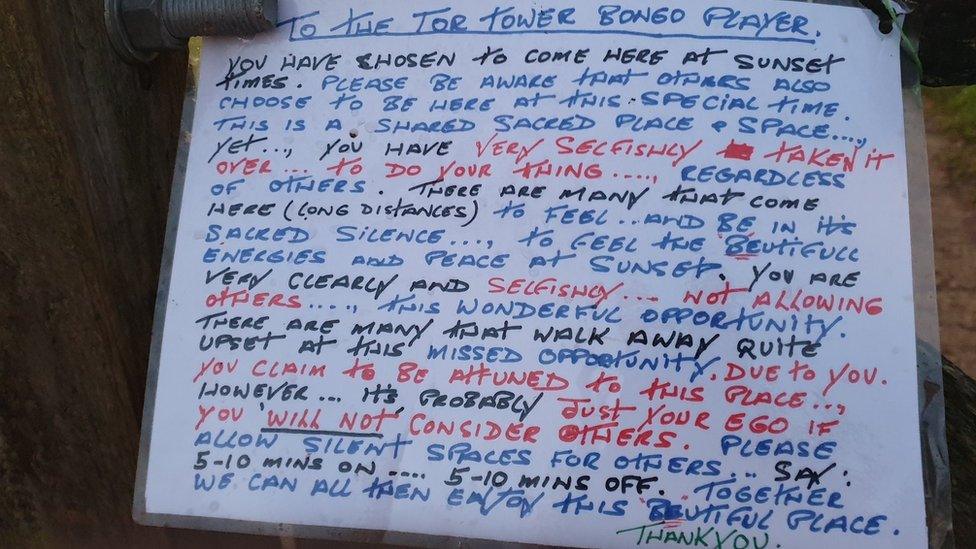 TO THE TOR TOWER BONGO PLAYER.
YOU HAVE CHOSEN TO COME HERE AT SUNSET
TIMES. PLEASE BE AWARE THAT OTHERS ALSO
CHOOSE TO BE HERE AT THIS SPECIAL TIME.
THIS IS A SHARED SACRED PLACE & SPACE....,
YET..., YOU HAVE VERY SELFISHLY TAKEN IT
OVER... TO DO YOUR THING...., REGARDLESS
OF OTHERS. THERE ARE MANY THAT COME
HERE (LONG DISTANCES) TO FEEL.. AND BE IN IT'S
SACRED SILENCE...., TO FEEL THE BEUTIFULL
ENERGIES AND PEACE AT SUNSET. YOU ARE
VERY CLEARLY AND SELFISHLY... NOT ALLOWING
OTHERS....., THIS WONDERFUL OPPORTUNITY.
THERE ARE MANY THAT WALK AWAY QUITE
UPSET AT THIS MISSED OPPORTUNITY. DUE TO YOU.
YOU CLAIM TO BE ATTUNED TO THIS PLACE...,
HOWEVER... IT'S PROBABLY JUST YOUR EGO IF
YOU 'WILL NOT' CONSIDER OTHERS. PLEASE
ALLOW SILENT SPACES FOR OTHERS... SAY:
5-10 MINS ON..... 5-10 MINS OFF. TOGETHER
WE CAN ALL THEN ENJOY THIS BEUTIFUL PLACE.
THANKYOU.